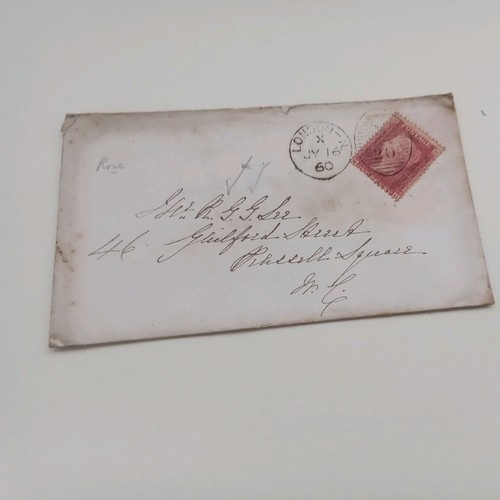 Rose
LONDON-N
X
JY 16
60
Mr. R. G. G. Lee
46. Guilford Street
Russell Square
W. C.